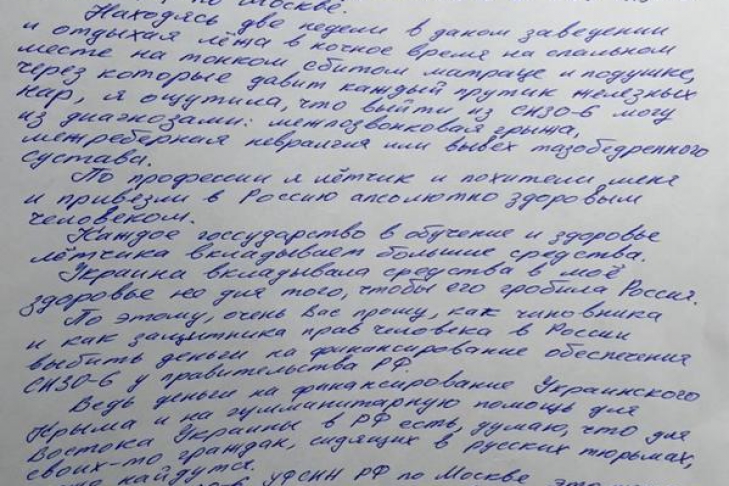 по Москве.
Находясь две недели в даном заведении
и отдыхая лёжа в ночное время на спальном
месте на тонком сбитом матраце и подушке,
через которые давит каждый прутик железных
нар, я ощутила, что выйти из СИЗО-6 могу
из диагнозами: межпозвонковая грыжа,
межреберная невралгия или вывех тазобедренного
сустава.
По профессии я лётчик и похители меня
и привезли в Россию апсолютно здоровым
человеком.
Каждое госсударство в обучение и здоровье
лётчика вкладывает большие средства.
Украина вкладывала средства в моё
здоровье не для того, чтобы его гробила Россия.
По этому, очень Вас прошу, как чиновника
и как защитника прав человека в России
выбить деньги на финансирование обеспечения
СИЗО-6 у правительства РФ.
Ведь деньги на финансирование Украинского
Крыма и на гумманитарную помощь для
Востока Украины в РФ есть, думаю, что для
своих-то граждан, сидящих в русских тюрьмах,
найдутся.
УФСИН РФ по Москве